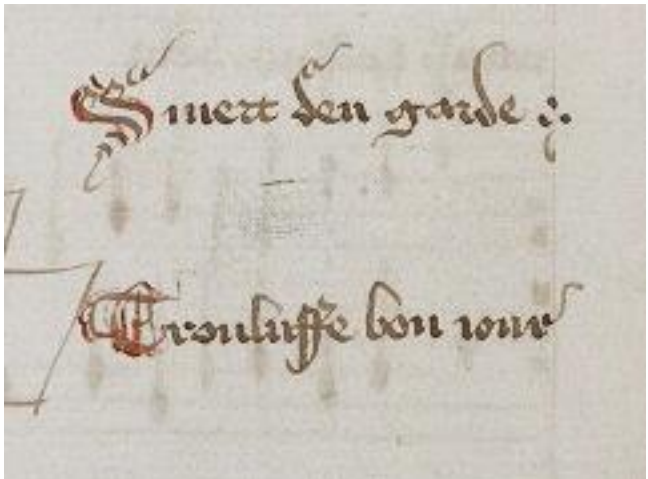 Smert deu garde :.
Trouluffe bon iour